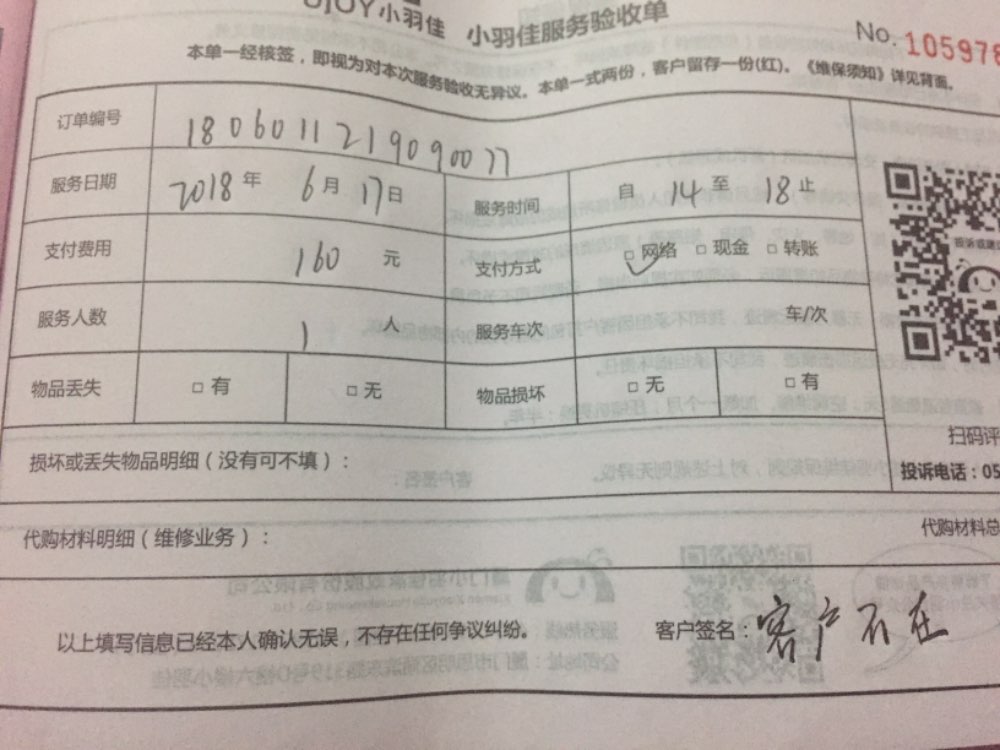 小羽佳 小羽佳服务验收单
No. 105976
本单一经核签，即视为对本次服务验收无异议。本单一式两份，客户留存一份(红)。《维保须知》详见背面。
订单编号 1806011219090077
服务日期 2018 年 6 月 17 日 服务时间 自 14 至 18 止
支付费用 160 元 支付方式 □ 网络 □ 现金 □ 转账
服务人数 1 人 服务车次 车/次
物品丢失 □ 有 □ 无 物品损坏 □ 无 □ 有
扫码评
损坏或丢失物品明细（没有可不填）：
投诉电话：05
代购材料明细（维修业务）： 代购材料总
以上填写信息已经本人确认无误，不存在任何争议纠纷。 客户签名：客户不在